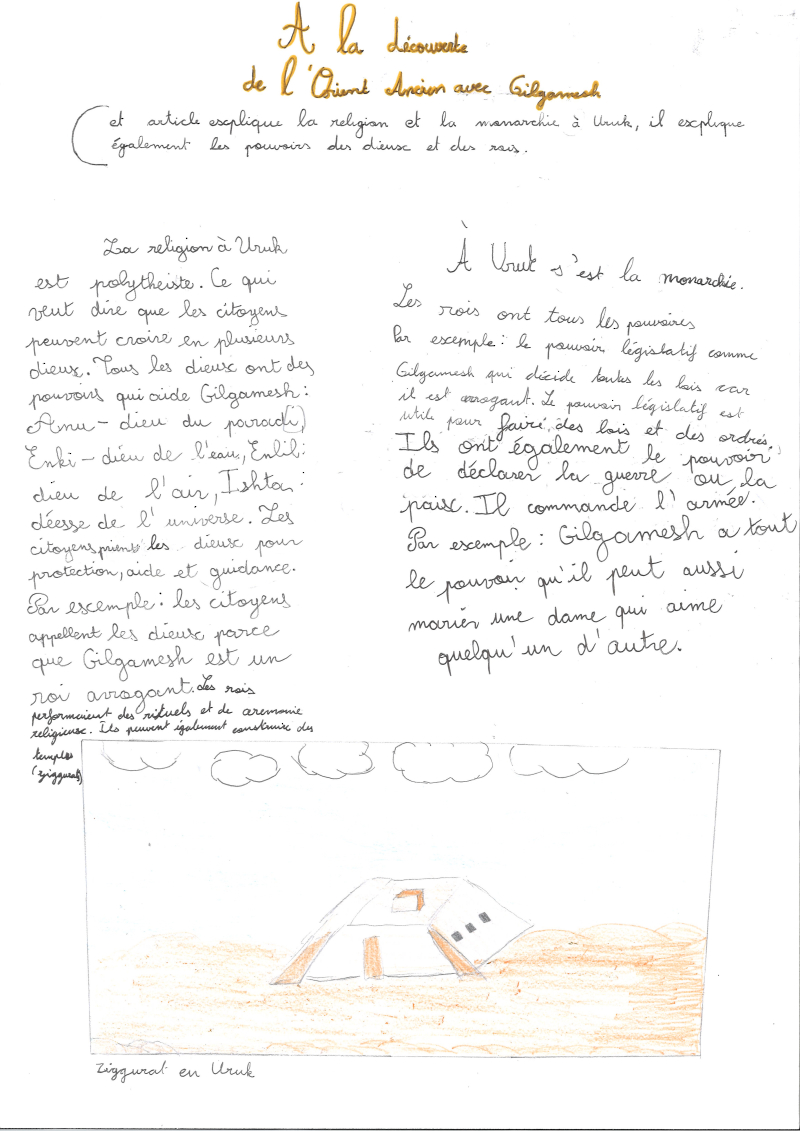 A la découverte
de l'Orient Ancien avec Gilgamesh
Cet article explique la religion et la monarchie à Uruk, il explique
également les pouvoirs des dieux et des rois.
La religion à Uruk
est polytheiste. Ce qui
veut dire que les citoyens
peuvent croire en plusieurs
dieux. Tous les dieux ont des
pouvoirs qui aide Gilgamesh :
Anu - dieu du paradi,
Enki - dieu de l'eau, Enlil :
dieu de l'air, Ishta :
déesse de l'universe. Les
citoyens prient les dieux pour
protection, aide et guidance.
Par exemple : les citoyens
appellent les dieux parce
que Gilgamesh est un
roi arrogant. Les rois
performaient des rituels et de ceremonie
religieuse. Ils peuvent également construire des
temples
(ziggurat)
À Uruk s'est la monarchie.
Les rois ont tous les pouvoires
Par exemple : le pouvoir législatif comme
Gilgamesh qui décide toutes les lois car
il est arrogant. Le pouvoir législatif est
utile pour faire des lois et des ordres.
Ils ont également le pouvoir
de déclarer la guerre ou la
paix. Il commande l'armée.
Par exemple : Gilgamesh a tout
le pouvoir qu'il peut aussi
marier une dame qui aime
quelqu'un d'autre.
Ziggurat en Uruk